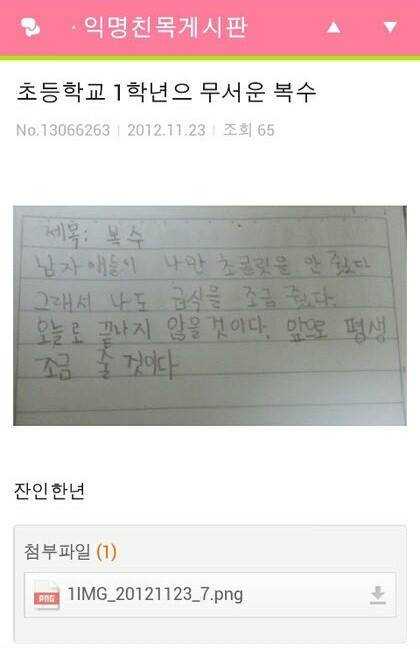 · 익명친목게시판 ▲ ▼
초등학교 1학년으 무서운 복수
No.13066263 | 2012.11.23 | 조회 65
제목: 복수
남자 애들이 나만 초콜릿을 안 줬다
그래서 나도 급식을 조금 줬다.
오늘로 끝나지 않을 것이다. 앞으로 평생
조금 줄 것이다
잔인한년
첨부파일 (1)
PNG 1IMG_20121123_7.png